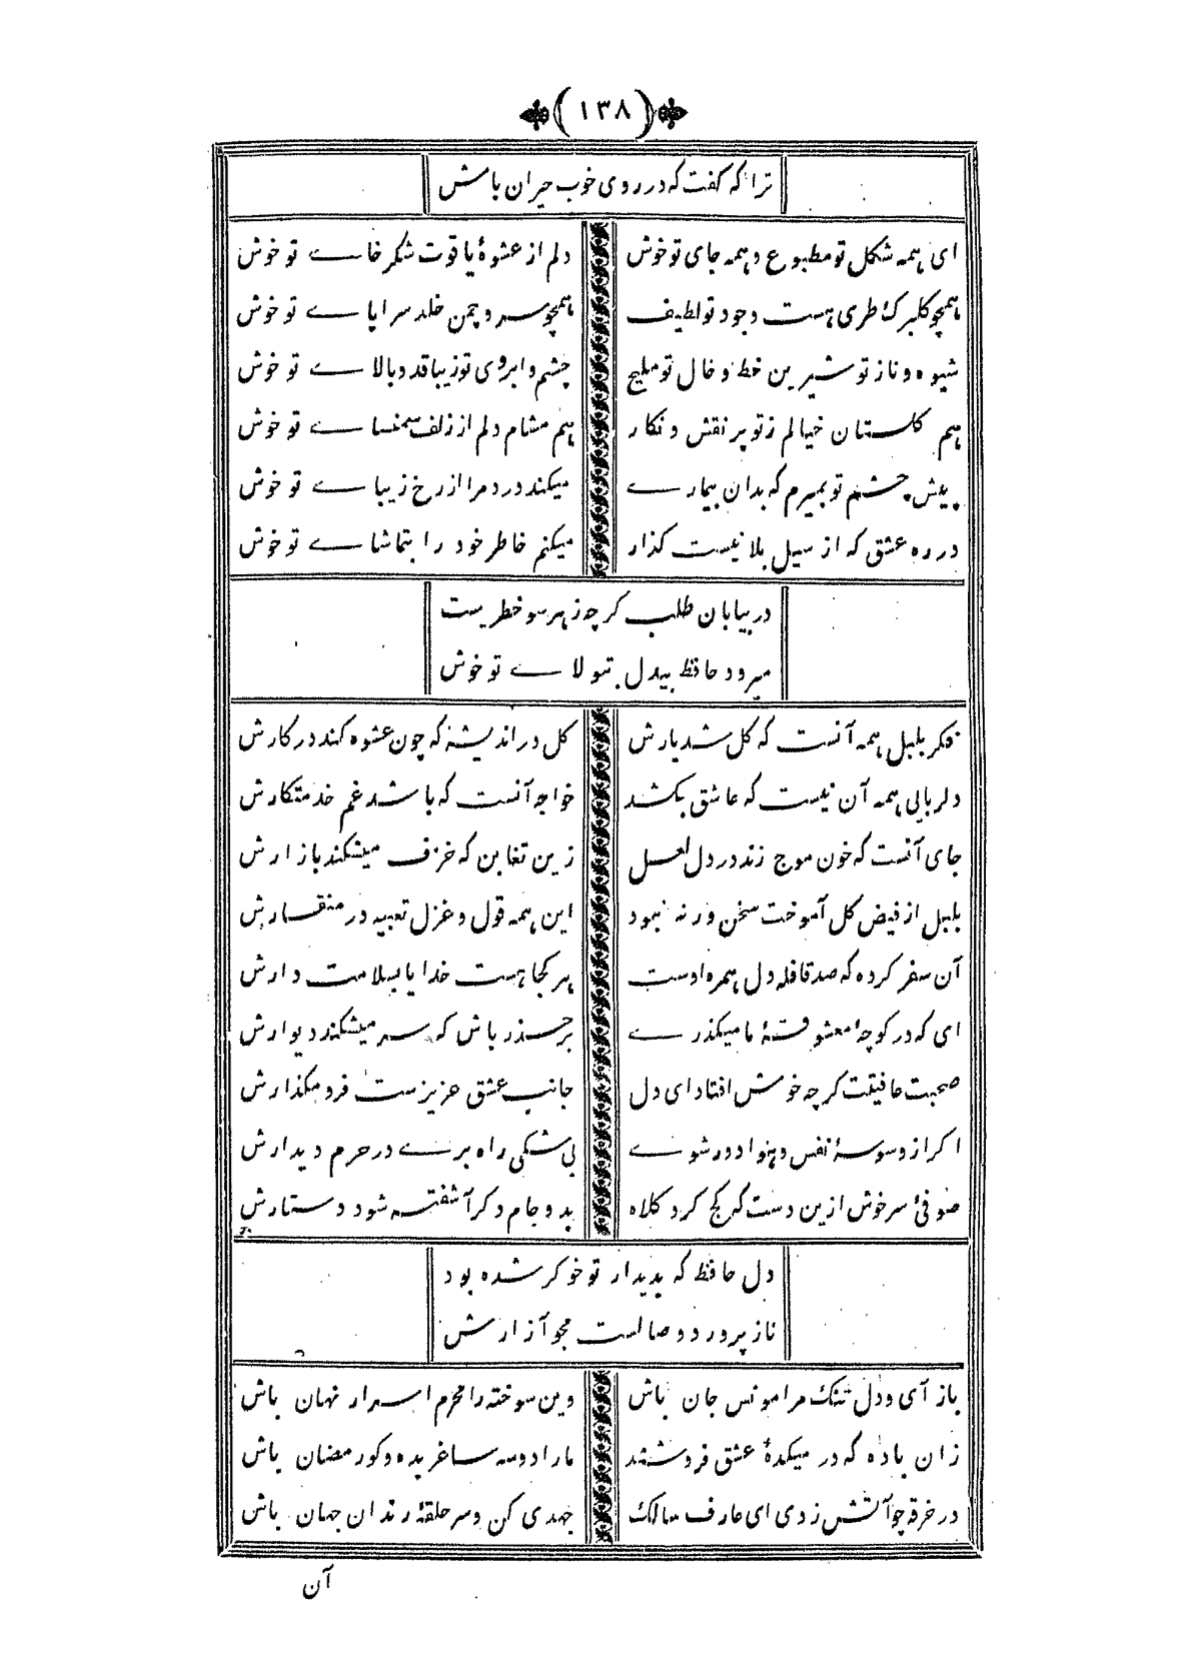 (۱۳۸)
ترا که گفت که در روی خوب حیران باش
ای همه شکل تو مطبوع و همه جای تو خوش
دلم از عشوهٔ یاقوت شکر خای تو خوش
همچو گلبرگ طری هست وجود تو لطیف
همچو سرو چمن خلد سراپای تو خوش
شیوه و ناز تو شیرین خط و خال تو ملیح
چشم و ابروی تو زیبا قد و بالای تو خوش
هم گلستان خیالم ز تو پر نقش و نگار
هم مشام دلم از زلف سمنسای تو خوش
پیش چشم تو بمیرم که بدان بیماری
میکند درد مرا از رخ زیبای تو خوش
در ره عشق که از سیل بلا نیست گذار
میکنم خاطر خود را بتماشای تو خوش
در بیابان طلب گرچه ز هر سو خطریست
میرود حافظ بیدل بتولای تو خوش
فکر بلبل همه آنست که گل شد یارش
گل در اندیشه که چون عشوه کند در کارش
دلربایی همه آن نیست که عاشق بکشد
خواجه آنست که باشد غم خدمتگارش
جای آنست که خون موج زند در دل لعل
زین تغابن که خزف میشکند بازارش
بلبل از فیض گل آموخت سخن ورنه نبود
این همه قول و غزل تعبیه در منقارش
آن سفر کرده که صد قافله دل همره اوست
هر کجا هست خدایا بسلامت دارش
ای که در کوچهٔ معشوقهٔ ما میگذری
بر حذر باش که سر میشکند دیوارش
صحبت عافیتت گرچه خوش افتاد ای دل
جانب عشق عزیزست فرو مگذارش
اگر از وسوسهٔ نفس و هوا دور شوی
بی شکی راه بری در حرم دیدارش
صوفی سرخوش ازین دست که کج کرد کلاه
بدو جام دگر آشفته شود دستارش
دل حافظ که بدیدار تو خوگر شده بود
ناز پرورد وصالست مجو آزارش
باز آی و دل تنگ مرا مونس جان باش
وین سوخته را محرم اسرار نهان باش
زان باده که در میکدهٔ عشق فروشند
ما را دو سه ساغر بده و گو رمضان باش
در خرقه چو آتش زدی ای عارف سالک
جهدی کن و سر حلقهٔ رندان جهان باش
آن